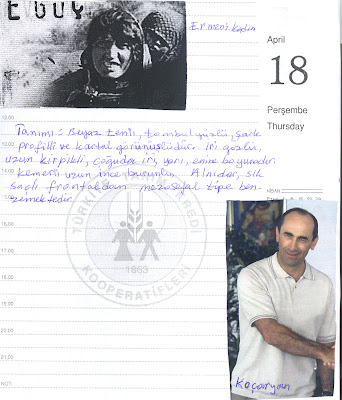 E GÜÇ
Ermeni. Kadın
April
18
Perşembe
Thursday
Tanımı: Beyaz tenli, tombul yüzlü, şark
profilli ve kartal görünüşlüdür. İri gözlü,
uzun kirpikli, çoğuda iri, yarı, enine boyunada
kemerli uzun ince burunlu. Alnıdar, sık
saçlı frontaldan mezosefal tipe ben-
zemektedir.
12.00
13.00
14.00
15.00
16.00
17.00
19.00
20.00
21.00
NOT:
NİSAN
TÜRKİYE TARIM KREDİ
KOOPERATİFLERİ
1863
Koçaryan